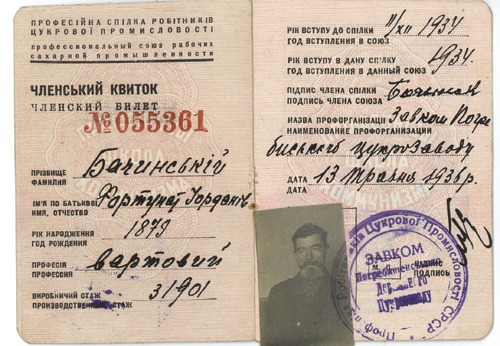 ПРОФЕСІЙНА СПІЛКА РОБІТНИКІВ
ЦУКРОВОЇ ПРОМИСЛОВОСТІ
профессиональный союз рабочих
сахарной промышленности
ЧЛЕНСЬКИЙ КВИТОК
ЧЛЕНСКИЙ БИЛЕТ
№055361
ПРІЗВИЩЕ
ФАМИЛИЯ
Бачинській
ІМ'Я ПО БАТЬКОВІ
ИМЯ, ОТЧЕСТВО
Фортунат
РІК НАРОДЖЕННЯ
ГОД РОЖДЕНИЯ
1879
ПРОФЕСІЯ
ПРОФЕССИЯ
вартовий
ВИРОБНИЧИЙ СТАЖ
ПРОИЗВОДСТВЕННЫЙ СТАЖ
З 1901
РІК ВСТУПУ ДО СПІЛКИ
ГОД ВСТУПЛЕНИЯ В СОЮЗ
1934
РІК ВСТУПУ В ДАНУ СПІЛКУ
ГОД ВСТУПЛЕНИЯ В ДАННЫЙ СОЮЗ
1934.
ПІДПИС ЧЛЕНА СПІЛКИ
ПОДПИСЬ ЧЛЕНА СОЮЗА
НАЗВА ПРОФОРГАНІЗАЦІЇ
НАИМЕНОВАНИЕ ПРОФОРГАНИЗАЦИИ
Завком
цукрозаводу
ДАТА
ДАТА
13 Травня 1936 р.
М П
ПІДПИС
ПОДПИСЬ
Цукрової Промисловості СРСР
ЗАВКОМ
Цукрзаводу